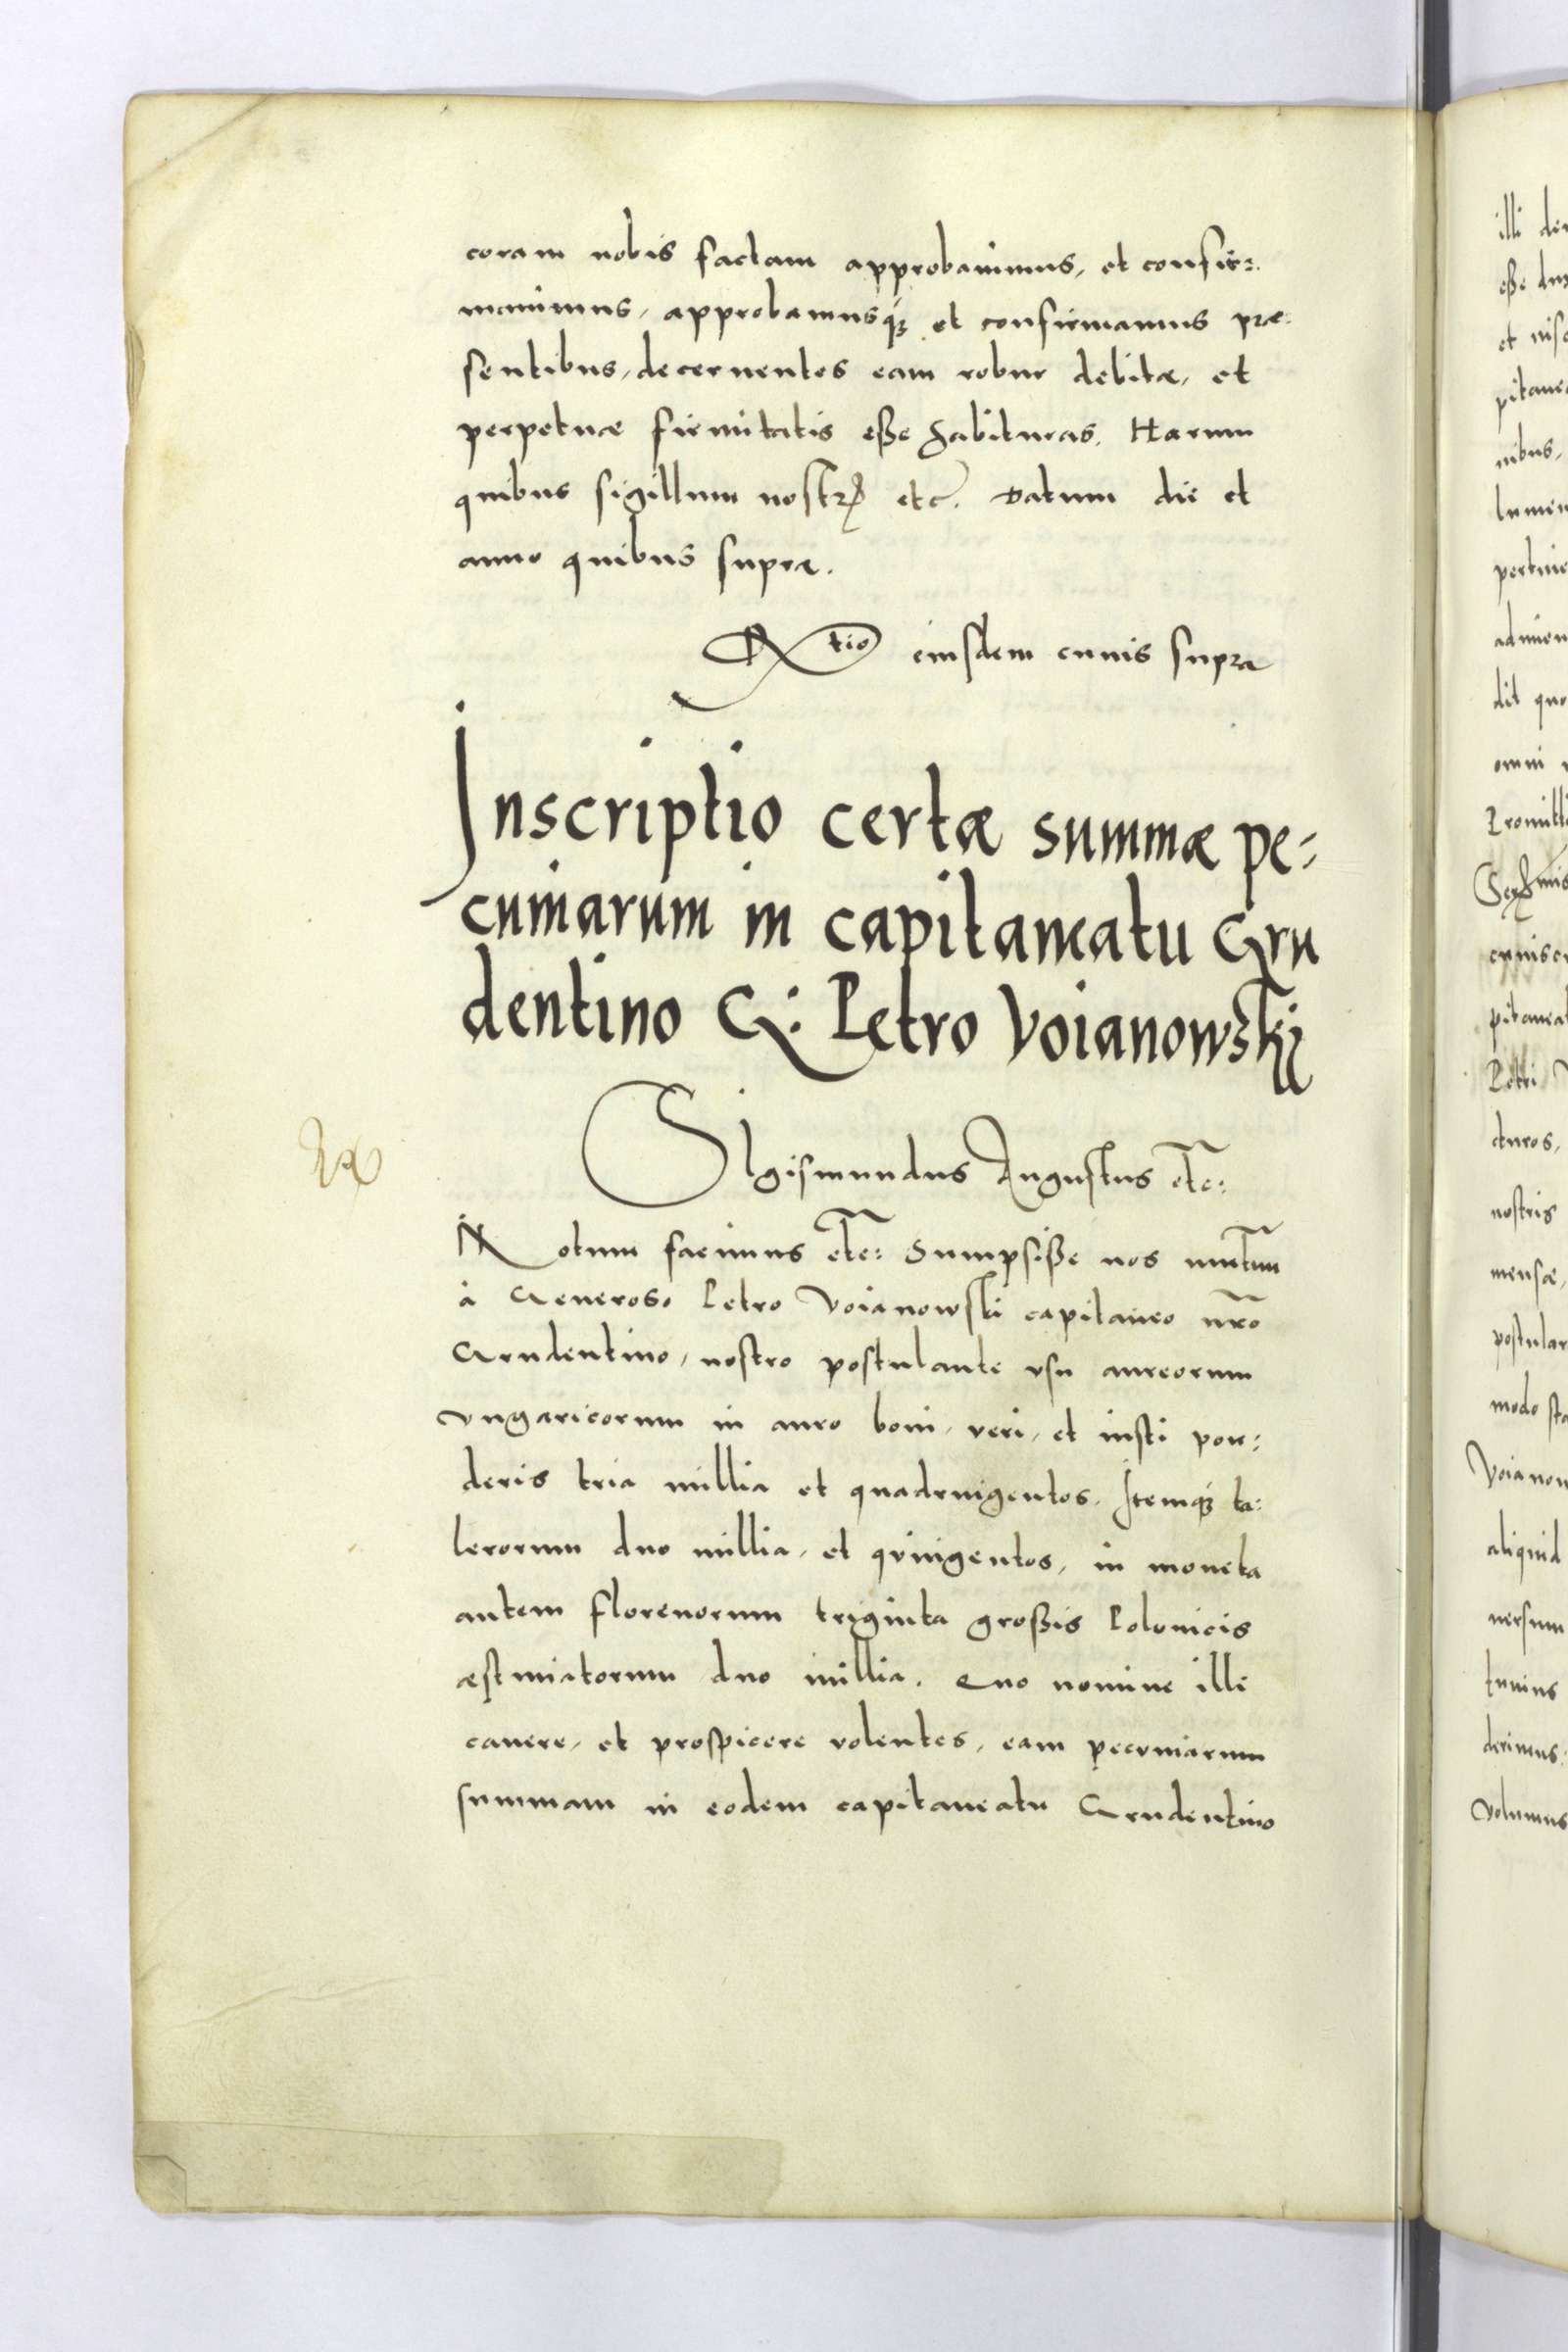 coram nobis factam approbauimus, et confir=
mauimus, approbamusq₃ et confirmamus præ-
sentibus, decernentes eam robur debitæ, et
perpetuæ firmitatis eße habituras. Harum
quibus sigillum nostrꝭ etc. Datum die et
anno quibus supra.
Rtio eiusdem cuius supra
Inscriptio certæ summæ pe=
cuniarum in capitaneatu Gru
dentino G: Petro Voianowskij
SIgismundus Augustus etc:
Notum facimus etc: Sumpsiße nos mutuu
à Generoso Petro Voianowski capitaneo nr̃o
Grudentino, nostro postulante vsu aureorum
vngaricorum in auro boni, veri, et iusti pon=
deris tria millia et quadringentos. Itemq₃ ta=
lerorum duo millia, et qvingentos, in moneta
autem florenorum triginta großis Polonicis
æstimatorum duo millia. Quo nomine illi
cauere, et prospicere volentes, eam pecuniarum
summam in eodem capitaneatu Grudentino
illi
eße
et
nibus,
omni
Petri
nostris
mensæ,
modo
aliquid
uersum
volumus